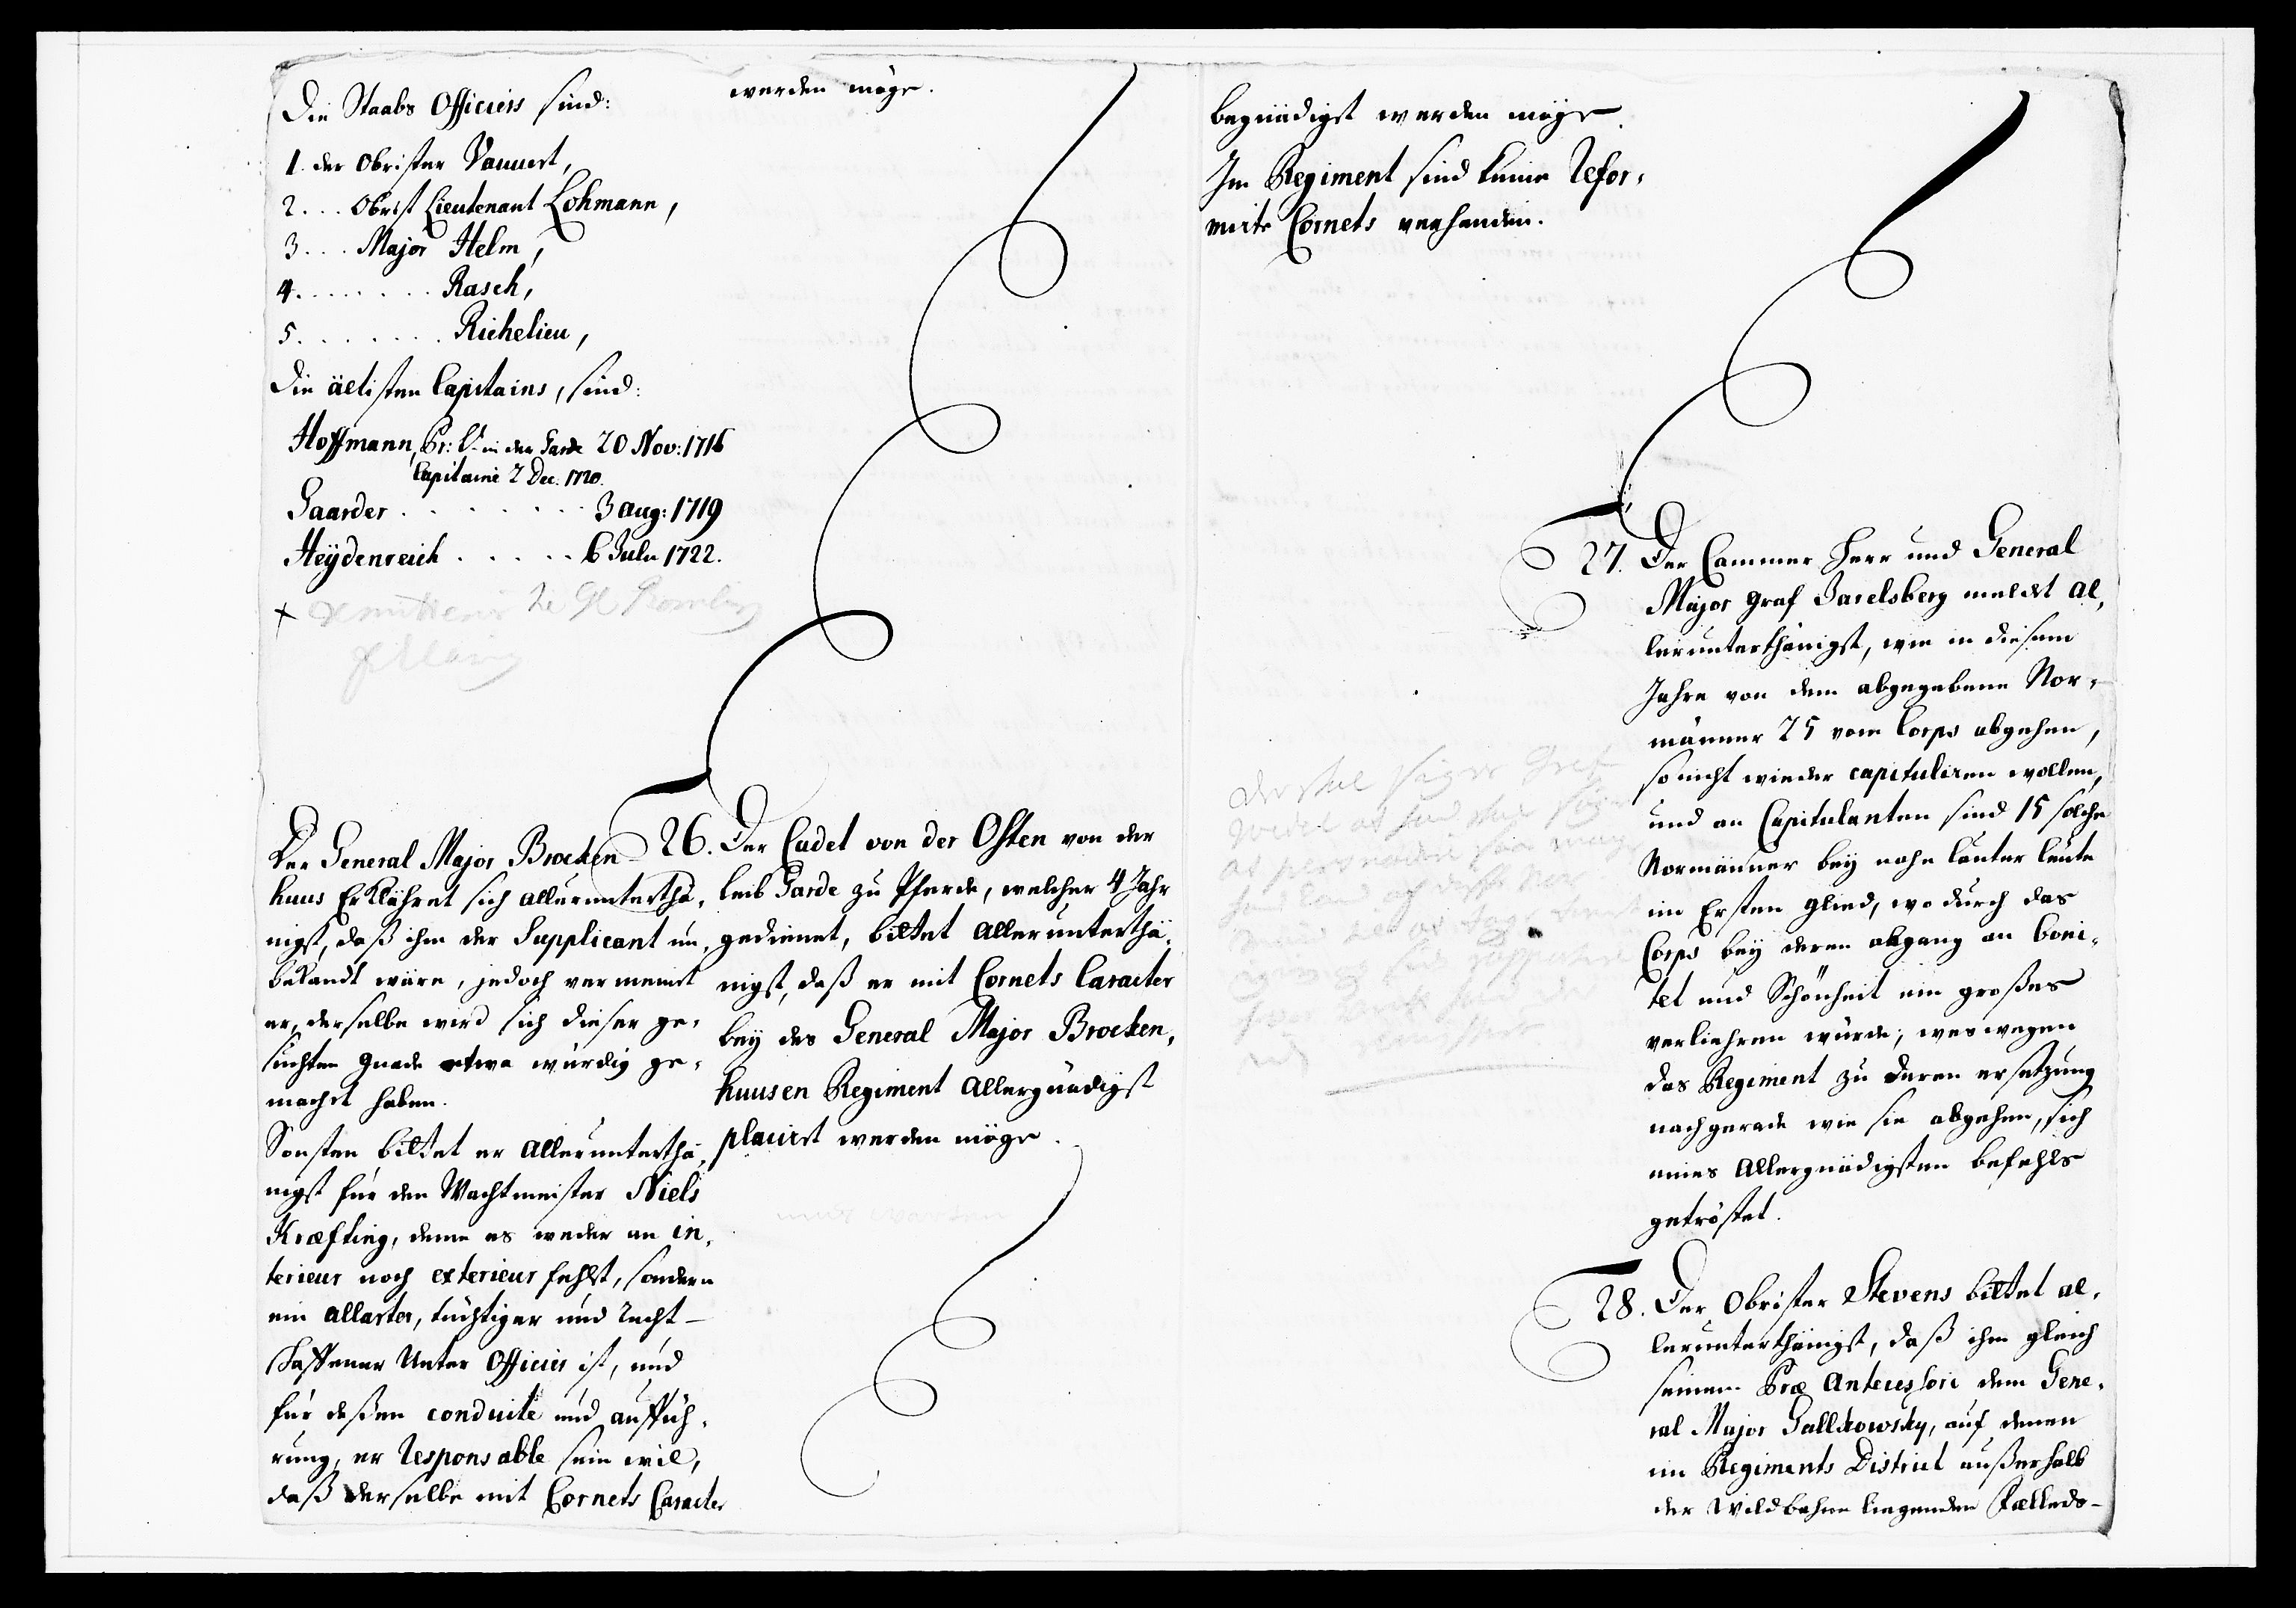 Die Staabs Officiers sind:
1. der Obrister Vauuert,
2... Obrist Lieutenant Lohmann,
3... Major Helm,
4........ Rasch,
5........ Richelieu,
Die ältisten Capitains, sind:
Hoffmann, Pr: Lt. in der Garde 20 Nov: 1716
Capitaine 2 Dec. 1720.
Gaarder........ 3 aug: 1719
Heÿdenreich..... 6 Julii 1722.
werden möge.
Der General Major Brocken-
huus Erklähret sich allerunterthä,
nigst, daß ihm der Supplicant un,
bekandt wäre, jedoch vermeinet
er, derselbe wird sich dieser ge,
suchten Gnade etwa würdig ge,
macht haben.
Sonsten bittet er allerunterthä,
nigst für den Wachtmeister Niels
Kræfting, deme es weder an in,
terieur noch exterieur fehlet, sondern
ein allarter, tüchtiger und recht-
schaffener Unter Officier ist, und
für deßen conduite und aufführ,
rung, er responsable sein wil,
daß derselbe mit Cornets Caracter
26. Der Cadet von der Osten von der
leib Garde zu Pferde, welcher 4 Jahr
gedienet, bittet allerunterthä,
nigst, daß er mit Cornets Caracter
bey des General Major Brocken,
huusen Regiment allergnädigst
placiret werden möge.
begnädigst werden möge.
Im Regiment sind keine Refor,
mirte Cornets verhanden.
27. Der Cammer Herr und General
Major Graf Jarelsberg meldet al,
lerunterthänigst, wie in diesem
Jahre von dem abgegebene Nor,
männer 25 vom Corps abgehen,
so nicht wieder capituliren wollen,
und an Capitulanten sind 15 solche
Normänner bey nahe lauter leute
im Ersten Glied, wodurch das
Corps bey deren abgang an boni,
tet und Schönheit ein großes
verliehren würde; weswegen
das Regiment zu deren ersetzung
nachgerade wie sie abgehen, sich
eines allergnädigsten befehls
getröstet.
28. Der Obrister Stevens bittet al,
lerunterthänigst, daß ihm gleich
seinem Præ Antecessori dem Gene,
ral Major Gallskowsky, auf denen
im Regiments District außerhalb
der Wildbahne liegenden Fælleds-